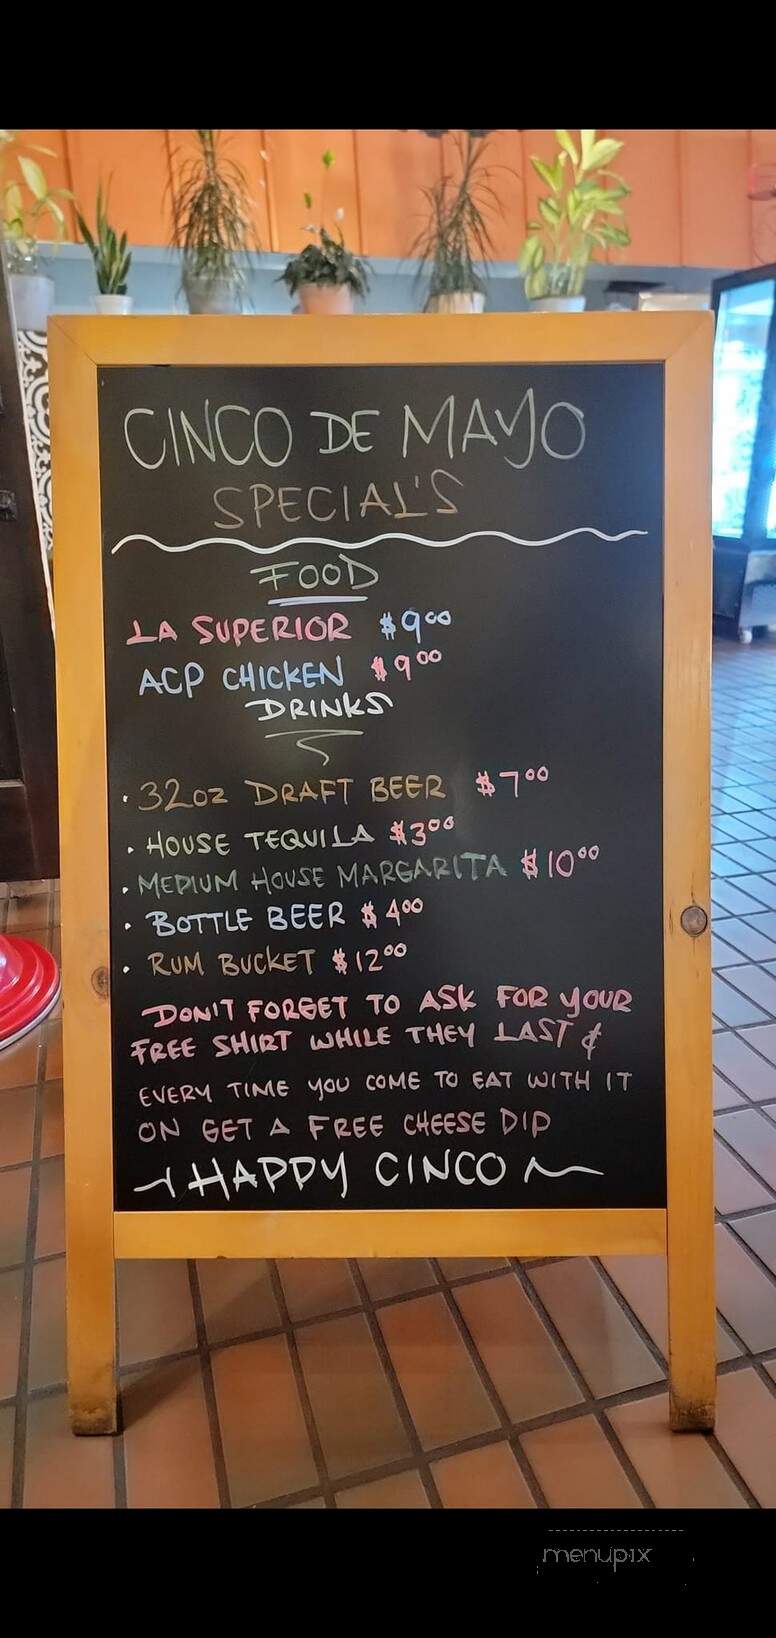 CINCO DE MAYO
SPECIAL'S
FOOD
LA SUPERIOR $900
ACP CHICKEN $900
DRINKS
· 32oz DRAFT BEER $700
· HOUSE TEQUILA $300
· MEDIUM HOUSE MARGARITA $1000
· BOTTLE BEER $400
· RUM BUCKET $1200
DON'T FORGET TO ASK FOR YOUR
FREE SHIRT WHILE THEY LAST &
EVERY TIME YOU COME TO EAT WITH IT
ON GET A FREE CHEESE DIP
HAPPY CINCO
menupix